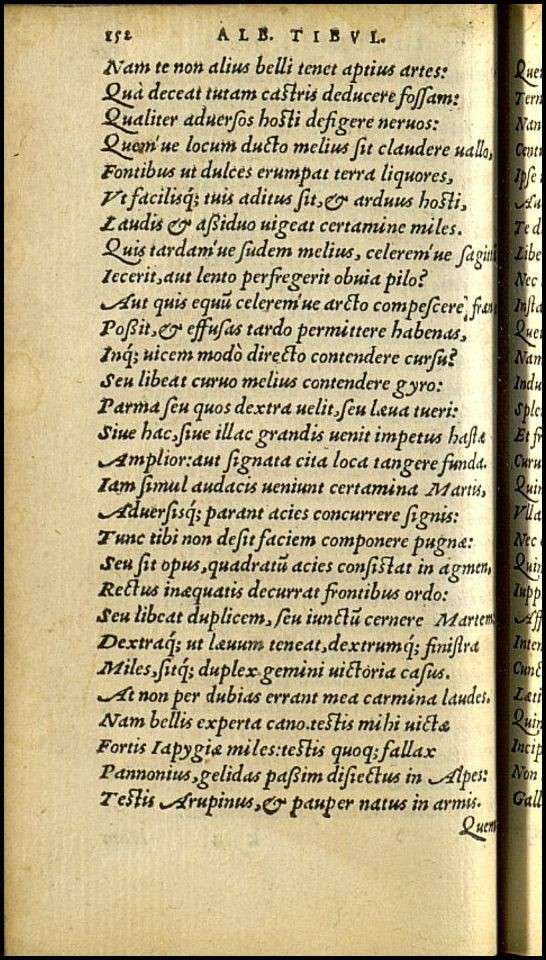 152 ALB. TIBVL.
Nam te non alius belli tenet aptius artes:
Quà deceat tutam castris deducere fossam:
Qualiter aduersos hosti defigere neruos:
Quem'ue locum ducto melius sit claudere uallo,
Fontibus ut dulces erumpat terra liquores,
Vt facilisq; tuis aditus sit, & arduus hosti,
Laudis & aßiduo uigeat certamine miles.
Quis tardam'ue sudem melius, celerem'ue sagitt
Iecerit, aut lento perfregerit obuia pilo?
Aut quis equū celerem'ue arcto compescere, fræn
Poßit, & effusas tardo permittere habenas,
Inq; uicem modò directo contendere cursu?
Seu libeat curuo melius contendere gyro:
Parma seu quos dextra uelit, seu læua tueri:
Siue hac, siue illac grandis uenit impetus hastæ
Amplior: aut signata cita loca tangere funda.
Iam simul audacis ueniunt certamina Martis,
Aduersisq; parant acies concurrere signis:
Tunc tibi non desit faciem componere pugnæ:
Seu sit opus, quadratū acies consistat in agmen,
Rectus inæquatis decurrat frontibus ordo:
Seu libeat duplicem, seu iunctū cernere Martem
Dextraq; ut læuum teneat, dextrumq; sinistra
Miles, sitq; duplex gemini uictoria casus.
At non per dubias errant mea carmina laudes.
Nam bellis experta cano. testis mihi uictæ
Fortis Iapygiæ miles: testis quoq; fallax
Pannonius, gelidas paßim disiectus in Alpes:
Testis Arupinus, & pauper natus in armis.
Quem
Quem
Tern
Nan
Cent
Ipse
Au
Te d
Libe
Nec
Insta
Que
Nam
Indu
Splen
Et fr
Curu
Quin
Vlla
Nec
Quin
Iupp
Aff
Inten
Cunc
Læti
Quin
Incip
Non
Gall